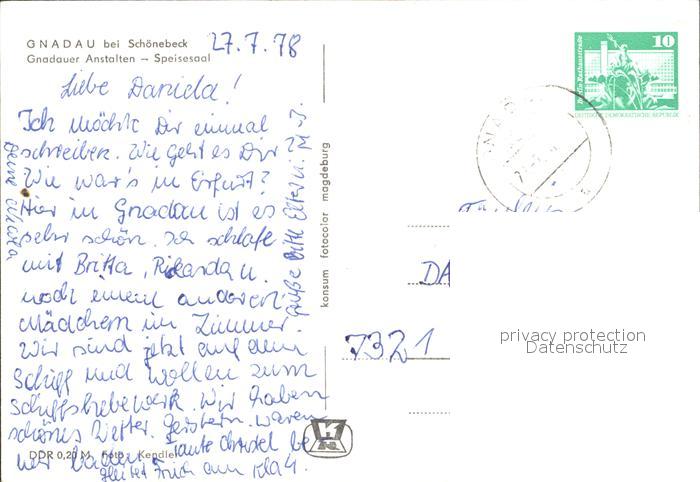 GNADAU bei Schönebeck
Gnadauer Anstalten – Speisesaal
27.7.78
Liebe Daniela!
Ich möchte Dir einmal
schreiben. Wie geht es Dir?
Wie war's in Erfurt?
Hier in Gnadau ist es
sehr schön. Ich schlafe
mit Britta, Ricarda u.
noch einem anderen
Mädchen im Zimmer.
Wir sind jetzt auf dem
Schiff und wollen zum
Schiffshebewerk. Wir haben
schönes Wetter. Gestern waren
wir baden. Tante Christel be
gleitet
Deine
Grüße bitte Eltern u.
DDR 0,20 M Foto: Kendler
konsum fotocolor magdeburg
10
Berlin, Rathausstraße
DEUTSCHE DEMOKRATISCHE REPUBLIK
DA
7321
privacy protection
Datenschutz